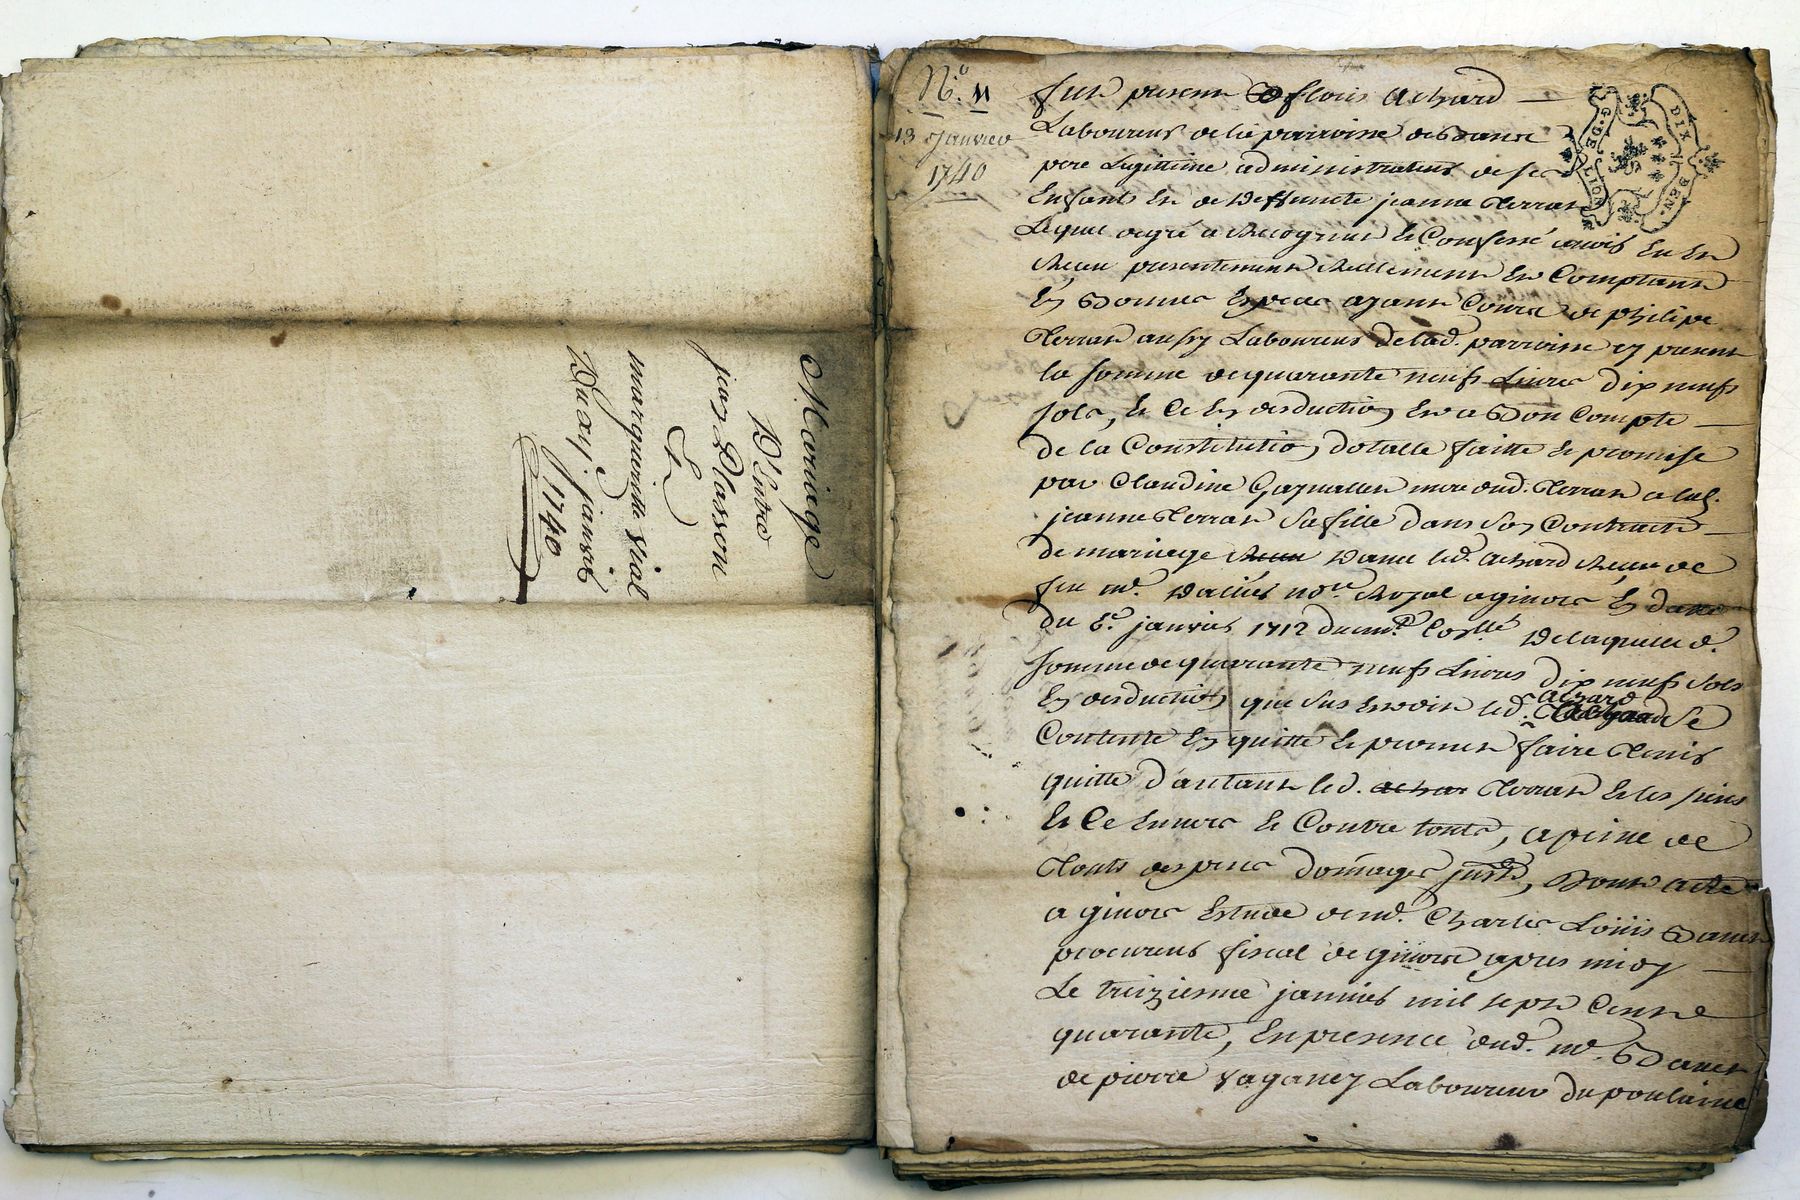 Mariage
D'Entre
jean Plasson
Et
margueritte Vial
Du xij. janvier
1740
N.º 11
13 Janvier
1740
G. DE LION
DIX DEN.
fut present Achard
Laboureur de la parroisse de
pere Legittime administrateur de ses
Enfants Et de deffuncte jeanne Terrat
Lequel de gré a Recognu Et Confessé avoir Eu Et
Receu presentement Reellement Et Comptant
En Bonnes Especes ayant Cours de philipe
Terrat aussy Laboureur de lad. parroisse cy present
la somme de quarante neufs Livres dix neufs
sols, Et Ce En desduction Et a Bon Compte
de la Constitution dotalle faitte Et promise
par Claudine mere dud. Terrat a lad.
jeanne Terrat Sa fille dans Son Contract
de mariage Receu avec led. Achard Receu de
feu me. no.re Royal a givors En datte
du 6.e janvier 1712 De laquelle d.
somme de quarante neufs Livres dix neufs Sols
En desduction que dessus led. Achard Se
Contente En quitte Et promet faire Tenir
quitte d'autant led. achar Terrat Et les siens
Et Ce Envers Et Contre touts, a peine de
Touts despens domages Dont acte
a givors Estude de me. Charles Louis
procureur fiscal de givors apres midy
Le treizieme janvier mil sept Cent
quarante, En presence dud. me.
de pierre Laboureur du